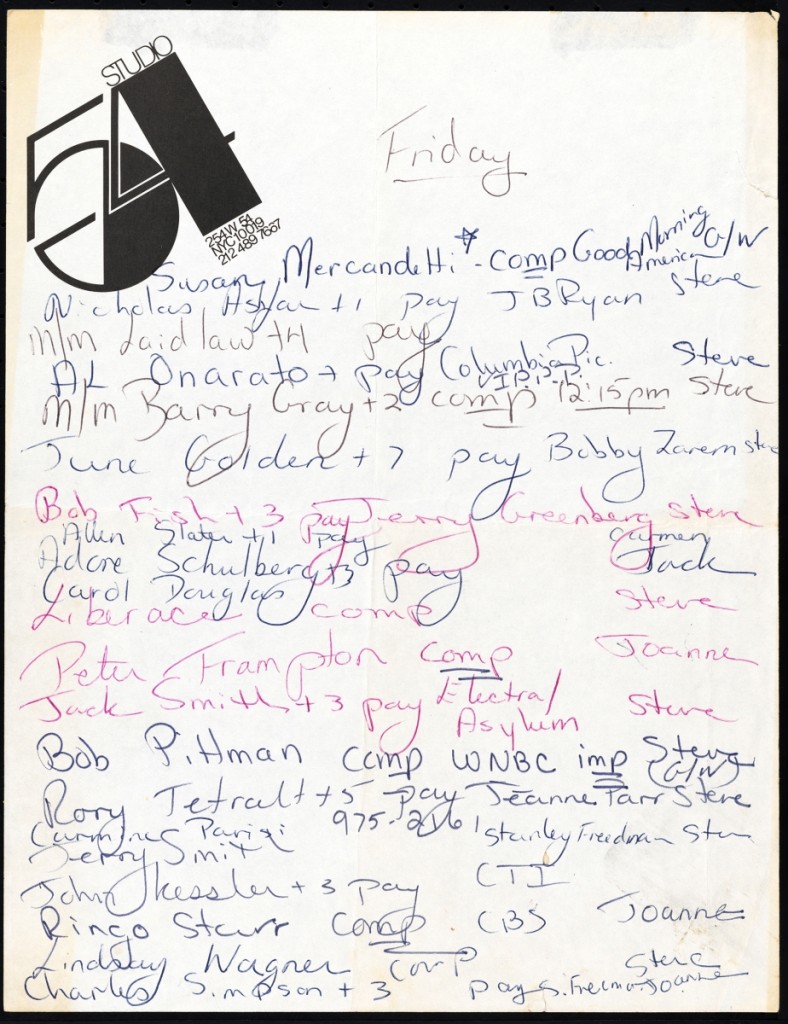 STUDIO
54
254 W. 54
NYC 10019
212 489 7667
Friday
Susan Mercandetti* - comp Good Morning America G/W
Nicholas +1 pay J B Ryan Steve
M/m Laidlaw +4 pay
AL Onarato + pay Columbia Pic. Steve
M/m Barry Gray +2 comp V.I.P. 12:15pm Steve
June Golden +7 pay Bobby Zarem Steve
Bob Fish +3 pay Jerry Greenberg Steve
Allen Slater +1 pay Carmen
Adore Schulberg +3 pay Jack
Carol Douglas
Liberace comp Steve
Peter Frampton comp Joanne
Jack Smith +3 pay Electra/Asylum Steve
Bob Pittman comp WNBC imp Steve (G/W)
Rory +5 pay Jeanne Parr Steve
Carmine Parisi 975-2161 Stanley Freedman Steve
Jerry Smit
John Kessler +3 pay CTI
Ringo Starr comp CBS Joanne
Lindsay Wagner comp Steve
Charles Simpson +3 pay S. Joanne